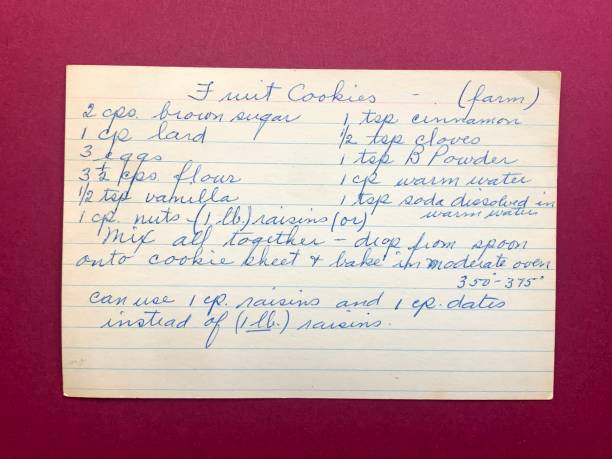 Fruit Cookies - (farm)
2 cps. brown sugar 1 tsp cinnamon
1 cp lard 1/2 tsp cloves
3 eggs 1 tsp B Powder
3 1/2 cps. flour 1 cp warm water
1/2 tsp vanilla 1 tsp soda dissolved in
warm water
1 cp. nuts - (1 lb) raisins (or)
Mix all together - drop from spoon
onto cookie sheet + bake in moderate oven
350° - 375°
can use 1 cp. raisins and 1 cp. dates
instead of (1 lb.) raisins.